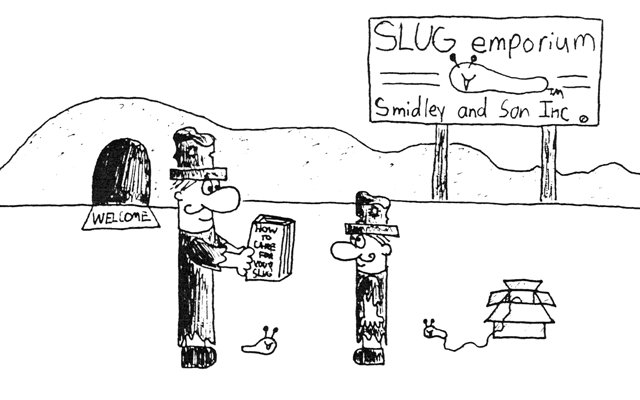 SLUG emporium
TM
Smidley and Son Inc.
WELCOME
HOW
TO
CARE
FOR
YOUR
SLUG